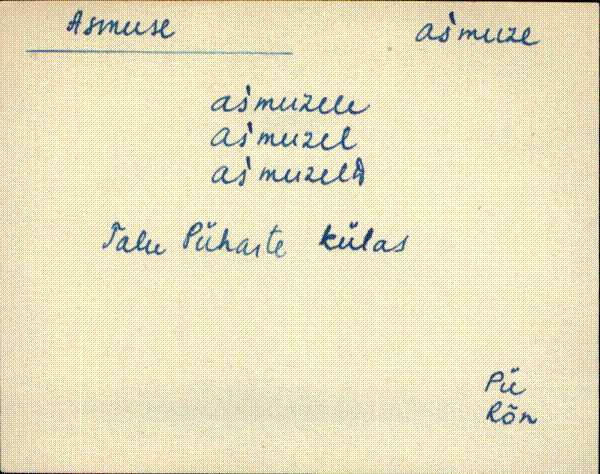 Asmuse aśmuze
aśmuzele
aśmuzel
aśmuzelᴅ̥
Talu Pühaste külas
Pü
Rõn